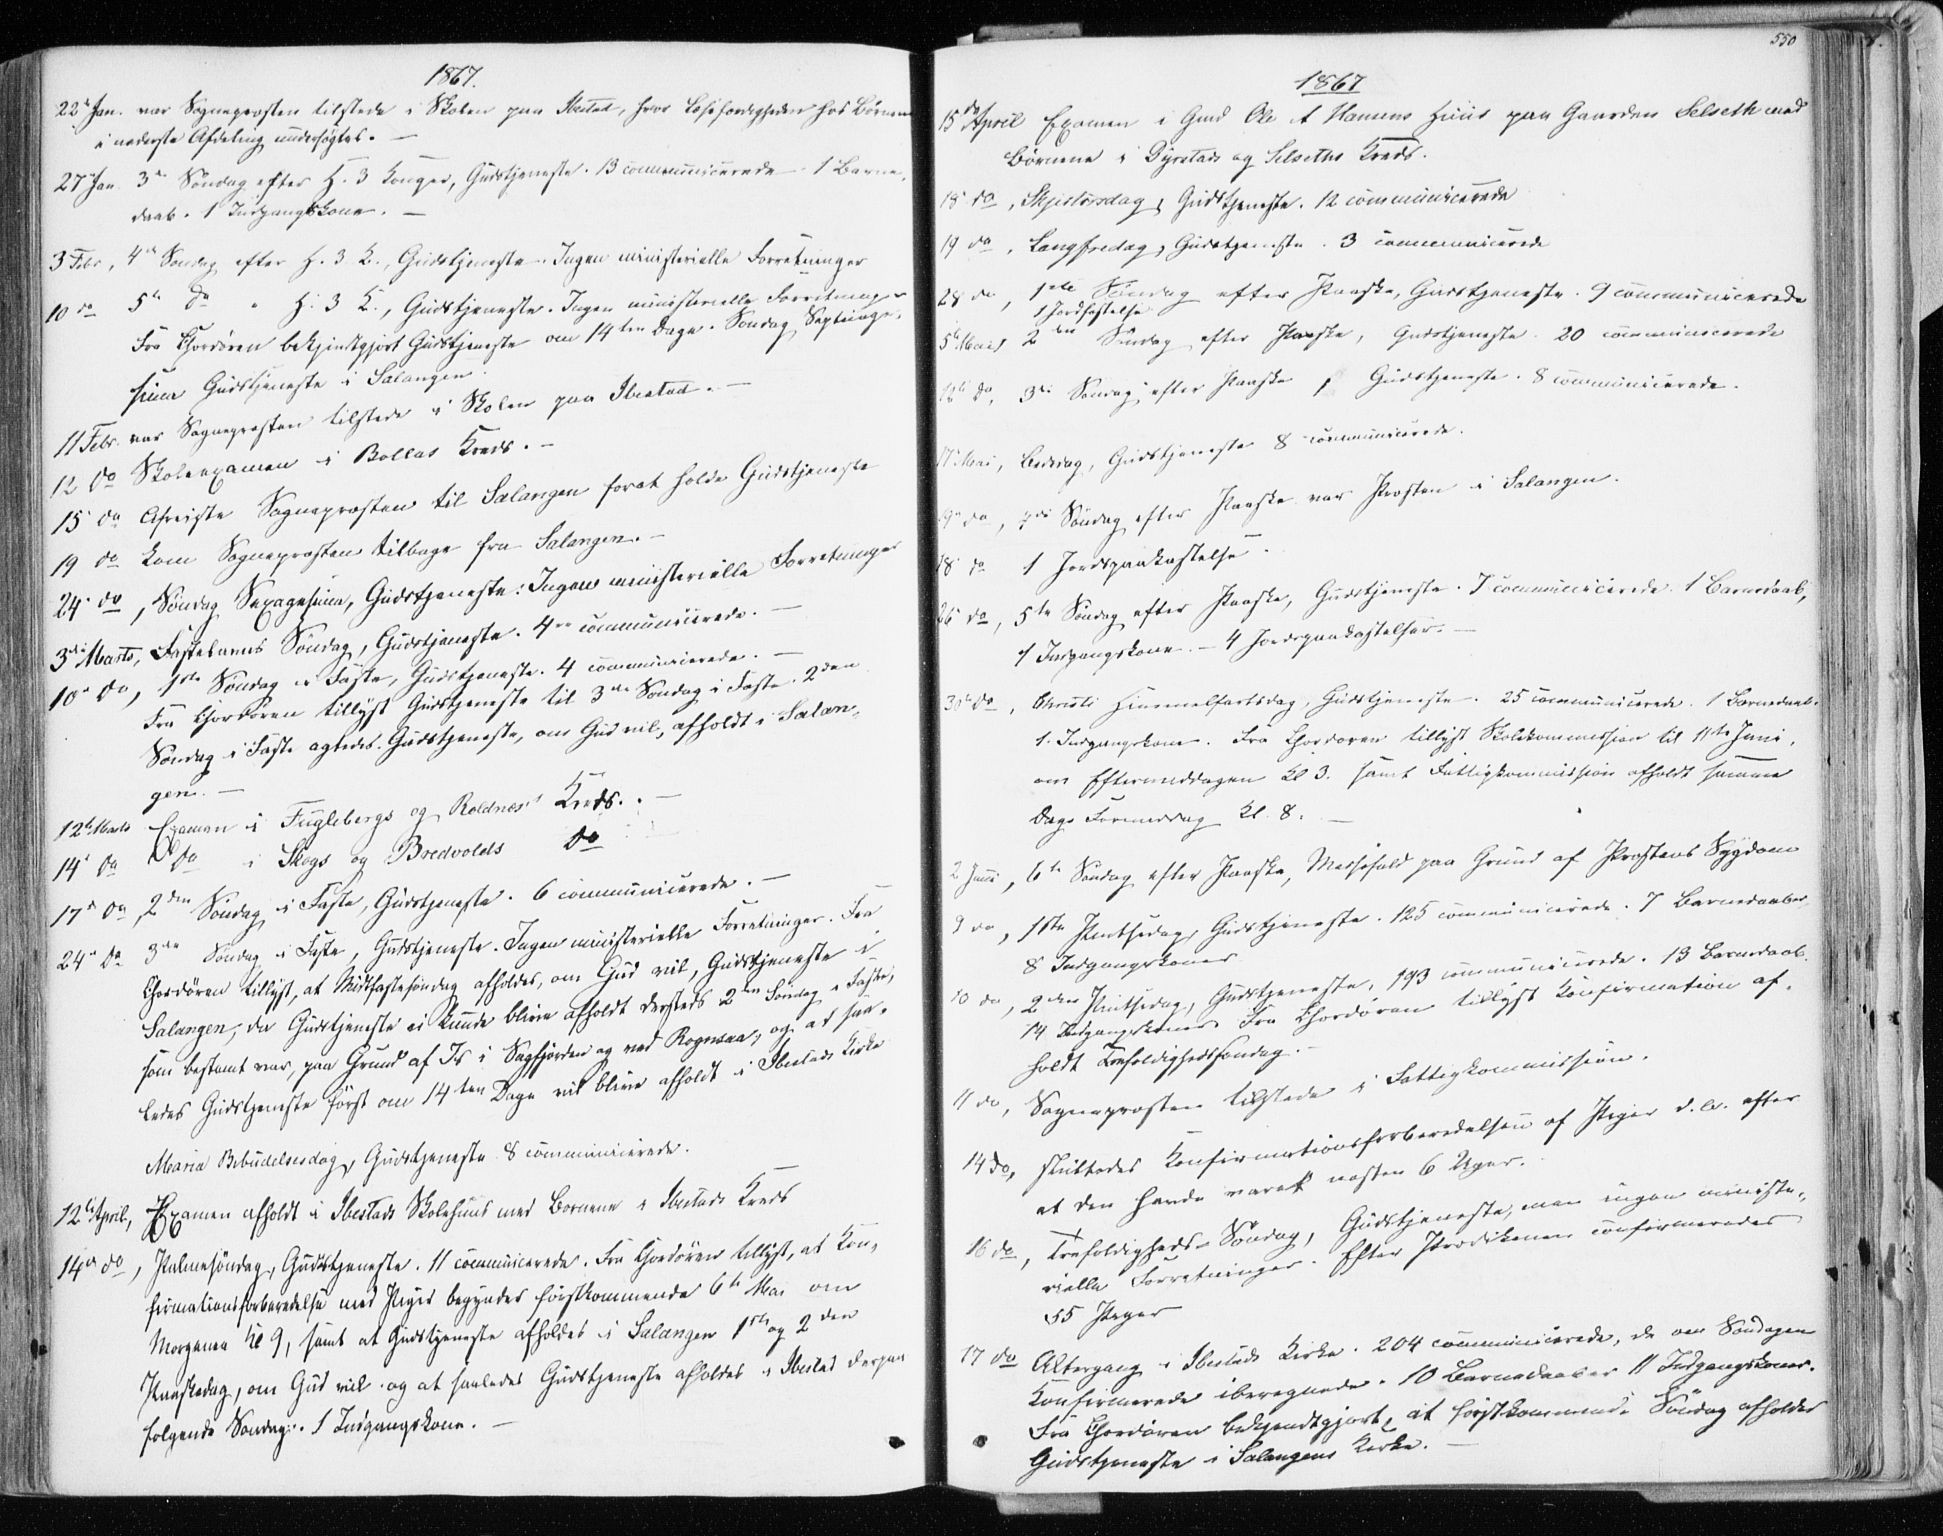 1867.
22de Jan. var Sogneprosten tilstede i Skolen paa Ibestad, hvor Læsefærdigheden hos Børnene
i nederste Afdeling undersøgtes. —
27de Jan. 3die Søndag efter H. 3 Konger, Gudstjeneste. 13 communicerede — 1 Barne,
daab. 1 Indgangskone. —
3 Febr, 4de Søndag efter H. 3 K., Gudstjeneste. Ingen ministerielle Forretninger
10 do 5te do " H. 3 K., Gudstjeneste. Ingen ministerielle Forretninger
Fra Chordøren bekjendtgjort Gudstjeneste om 14ten Dage. Søndag Septuage-
sima Gudstjeneste i Salangen.
11 Febr. var Sogneprosten tilstede i Skolen paa Ibestad. —
12 do Skoleexamen i Bollas Kreds. —
15 do Afreiste Sogneprosten til Salangen forat holde Gudstjeneste
19 do kom Sogneprosten tilbage fra Salangen. —
24 do, Søndag Sexagesima, Gudstjeneste. Ingen ministerielle Forretninger
3die Marts, Fastelavns Søndag, Gudstjeneste. 4re communicerede. —
10de do, 1ste Søndag i Faste, Gudstjeneste. 4 communicerede. —
Fra Chordøren tillyst Gudstjeneste til 3die Søndag i Faste. 2den
Søndag i Faste agtedes Gudstjeneste, om Gud vil, afholdt i Salan,
gen. —
12te Marts Examen i Fuglebergs og Roldnæs's Kreds. —
14de do do i Skogs og Bredvolds do
17de do, 2den Søndag i Faste, Gudstjeneste. 6 communicerede. —
24de do 3die Søndag i Faste, Gudstjeneste. Ingen ministerielle Forretninger. Fra
Chordøren tillyst, at Midfastesøndag afholdes, om Gud vil, Gudstjeneste i
Salangen, da Gudstjeneste ei kunde blive afholdt dersteds 2den Søndag i Faste,
som bestemt var, paa Grund af Is i Sagfjorden og ved Rognsaa, og at saa-
ledes Gudstjeneste først om 14ten Dage vil blive afholdt i Ibestads Kirke
Maria Bebudelsesdag, Gudstjeneste 8 communicerede.
12te April, Examen afholdt i Ibestads Skolehuus med Børnene i Ibestads Kreds
14de do, Palmesøndag, Gudstjeneste. 11 communicerede. Fra Chordøren tillyst, at Kon,
firmationsforberedelse med Piger begyndes førstkommende 6te Mai om
Morgenen Kl 9, samt at Gudstjeneste afholdes i Salangen 1ste og 2den
Paaskedag, om Gud vil og at saaledes Gudstjeneste afholdes i Ibestad derpaa
følgende Søndag. 1 Indgangskone. —
550
1867
15de April Examen i Gmd Ole A Hansens Huus paa Gaarden Selseth med
Børnene i Dyrstads og Selseths Kreds.
18 do, Skjærtorsdag, Gudstjeneste. 12 communicerede
19 do, Langfredag, Gudstjeneste. 3 communicerede
28 do, 1ste Søndag efter Paaske, Gudstjeneste. 9 communicerede
1 Jordfæstelse
5te Mai, 2den Søndag efter Paaske, Gudstjeneste. 20 communicerede
12te do, 3die Søndag efter Paaske, Gudstjeneste. 8 communicerede.
17 Mai, Bededag, Gudstjeneste 8 communicerede.
19de do, 4de Søndag efter Paaske var Prosten i Salangen.
18 do 1 Jordspaakastelse.
26 do, 5te Søndag efter Paaske, Gudstjeneste. 7 communicerede. 1 Barnedaab,
1 Indgangskone. — 4 Jordspaakastelser. —
30te do, Christi Himmelfartsdag, Gudstjeneste. 25 communicerede. 1 Barnedaab.
1. Indgangskone. Fra Chordøren tillyst Skolekommission til 11te Juni,
om Eftermiddagen Kl 3. samt Fattigkommission afholdt samme
Dags Formiddag Kl. 8. —
2 Juni, 6te Søndag efter Paaske, Messefald paa Grund af Prostens Sygdom
9 do, 1ste Pintsedag, Gudstjeneste. 125 communicerede. 7 Barnedaaber
8 Indgangskoner
10 do, 2den Pintsedag, Gudstjeneste, 193 communicerede. 13 Barnedaab.
14 Indgangskoner Fra Chordøren tillyst Konfirmation af-
holdt Trefoldighedssøndag. —
11 do, Sogneprosten tilstede i Fattigkommission.
14 do, sluttedes Konfirmationsforberedelsen af Piger d. A. efter
at den havde varet næsten 6 Uger.
16 do, Trefoldigheds-Søndag, Gudstjeneste, men ingen ministe-
rielle Forretninger. Efter Prædikenen confirmeredes
55 Piger
17 do Altergang i Ibestads Kirke. 204 communicerede, de om Søndagen
Konfirmerede iberegnede. 10 Barnedaaber 11 Indgangskoner.
Fra Chordøren bekjendtgjort, at førstkommende Søndag afholdes
Gudstjeneste i Salangens Kirke. —